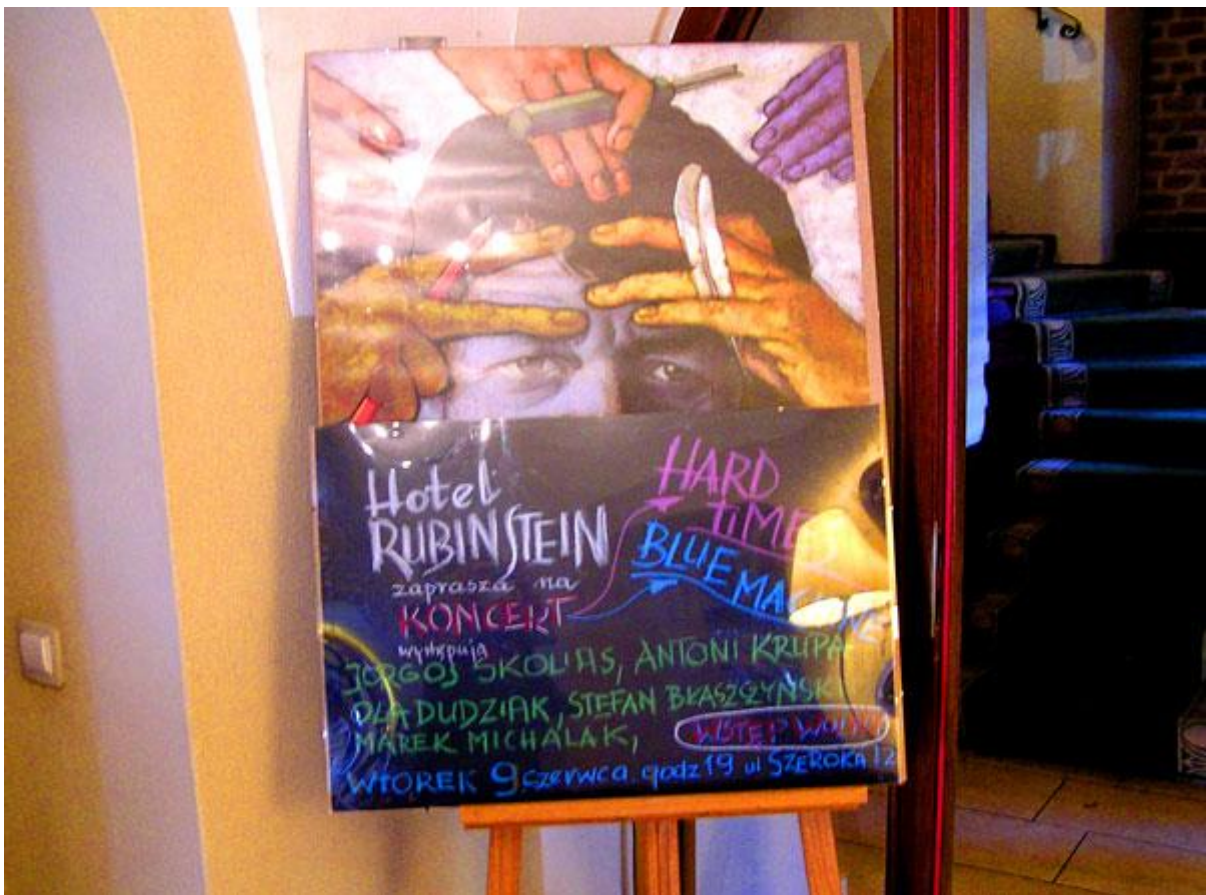 Hotel
RUBINSTEIN
zaprasza na
KONCERT
HARD
TIMES
BLUE
występują
JORGOS SKOLIAS, ANTONI KRUPA
OLA DUDZIAK, STEFAN BŁASZCZYŃSKI
MAREK MICHALAK,
WSTĘP WOLNY
WTOREK 9 czerwca godz 19 ul SZEROKA 12